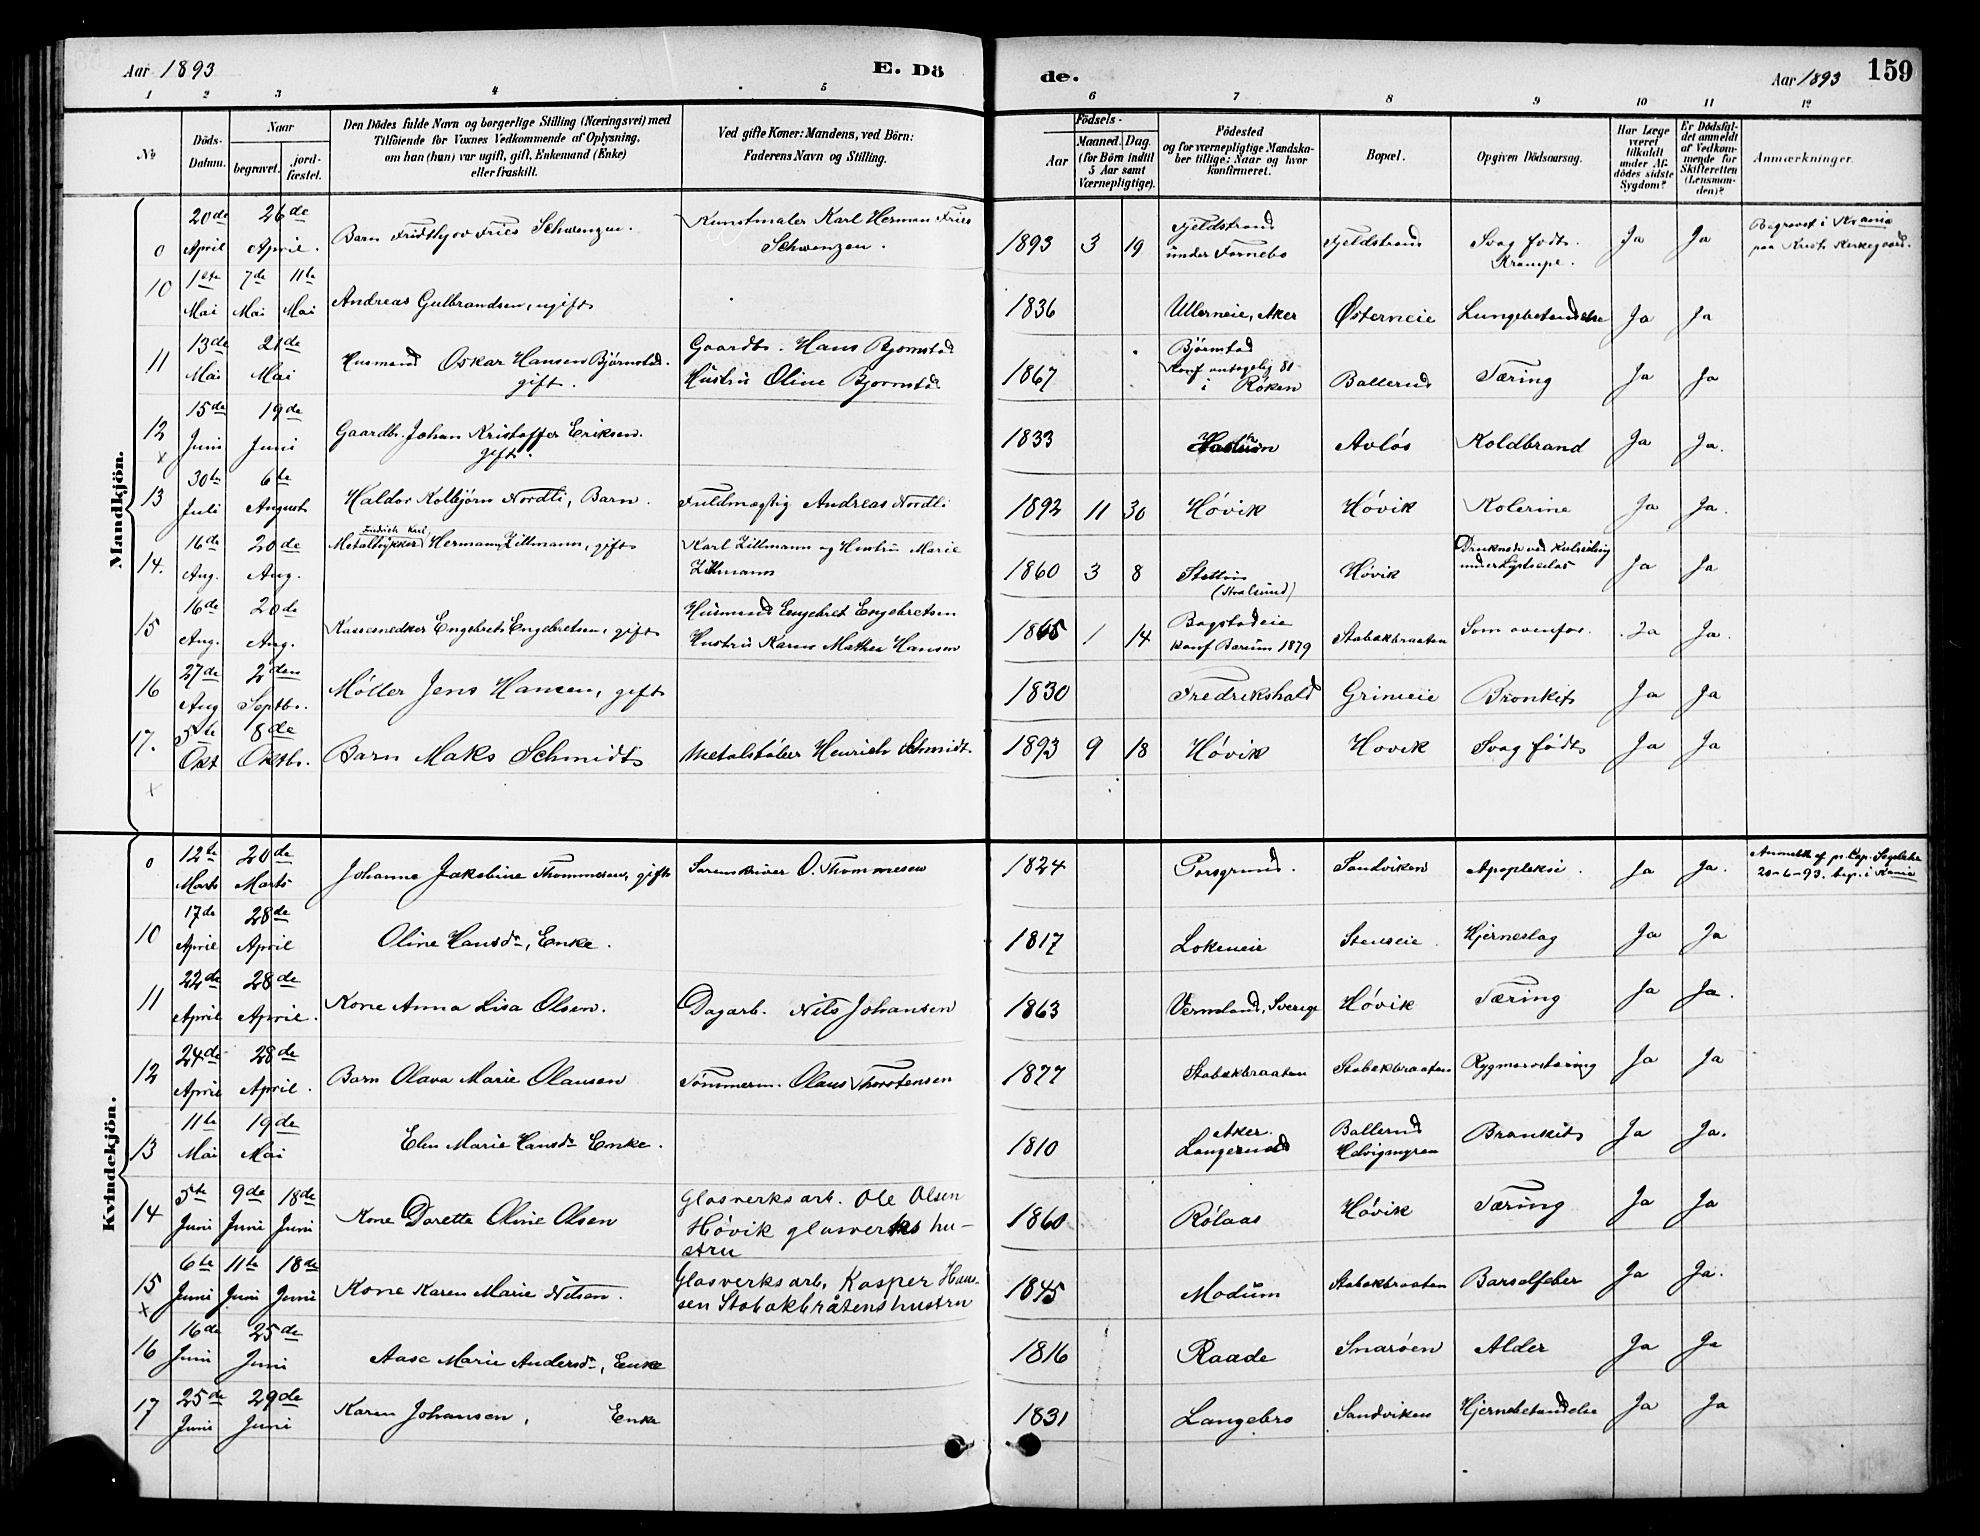 Aar 1893
E. Dö
de.
Aar 1893
159
1 2 3 4 5 6 7 8 9 10 11 12
No
Döds-
Datum.
Naar
begravet.
jord-
fæstet.
Den Dödes fulde Navn og borgerlige Stilling (Næringsvei) med
Tilföiende for Voxnes Vedkommende af Oplysning,
om han (hun) var ugift, gift, Enkemand (Enke)
eller fraskilt.
Ved gifte Koner: Mandens, ved Börn:
Faderens Navn og Stilling.
Födsels-
Aar
Maaned. Dag.
(for Börn indtil
5 Aar samt
Værnepligtige).
Födested
og for værnepligtige Mandska-
ber tillige: Naar og hvor
konfirmeret.
Bopæl.
Opgiven Dödsaarsag.
Har Læge
været
tilkaldt
under Af-
dödes sidste
Sygdom?
Er Dödsfal-
det anmeldt
af Vedkom-
mende for
Skifteretten
(Lensman-
den)?
Anmærkninger.
Mandkjön.
0 20de April 26de April. Barn Fridthjov Fries Schwenzen. Kunstmaler Karl Herman Fries
Schwenzen. 1893 3 19 Fjeldstrand
under Fornebo Fjeldstrand Svag födt.
Krampe. Ja Ja Begravet i Krania
paa Krists Kirkegaard.
10 1ste Mai 7de Mai 11te Mai Andreas Gulbrandsen, ugift 1836 Ullerneie, Aker Østerneie Lungebetændelse Ja Ja
11 13de Mai 21de Mai Husmand Oskar Hansen Bjørnstad.
gift. Gaardbr. Hans Bjornstad
Hustru Oline Bjornstad 1867 Björnstad
Konf antagelig 81
i Röken Ballerud Tæring Ja Ja
12 x 15de Juni 19de Juni Gaardbr. Johan Kristoffer Eriksen.
gift. 1833 Avlös Koldbrand Ja Ja.
13 30te Juli 6te August Haldor Kolbjörn Nordli, Barn. Fuldmægtig Andreas Nordli 1892 11 30 Hövik Hövik Kolerine Ja Ja.
14. 16de Aug. 20de Aug. Fredrich Karl
Hermann Zillmann, gift Karl Zillmann og Hustru Marie
Zillmann 1860 3 8 Stettin
(Stralsund) Hövik Druknede ved Kulseiling
under Lysthus Ja Ja
15 16de Aug. 20de Aug. Kassesnedker Engebret Engebretsen, gift Husmand Engebret Engebretsen
Hustru Karen Mathea Hansen 1865 1 14 Bogstadeie
Konf Bærum 1879 Stabækbraaten Som ovenfor. Ja Ja.
16 27de Aug 2den Septbr. Möller Jens Hansen, gift 1830 Fredrikshald Grinieie Bronkit Ja Ja
17. x 5te Okt 8de Oktbr. Barn Maks Schmidt Metalstöber Henrich Schmidt. 1893 9 18 Hövik Hovik Svag födt Ja Ja
Kvindekjön.
0 12te Marts 20de Marts Johanne Jakobine Thommesen, gift Sorenskriver O. Thommesen 1824 Porsgrund. Sandviken Apopleksi. Ja Ja.
20-6-93. i Krania
10 17de April 28de April Oline Hansdr, Enke. 1817 Lokeneie Stenseie. Hjerneslag Ja Ja
11 22de April 28de April. Kone Anna Lisa Olsen. Dagarb. Nils Johansen 1863 Vermland, Sverige Hövik Tæring Ja Ja.
12 24de April 28de April. Barn Olava Marie Olausen Tömmerm. Olaus Thorstensen 1877 Stabækbraaten Stabækbraaten Rygmarvstæring Ja Ja
13 11te Mai 19de Mai Elen Marie Hansdr Enke. 1810 Aker.
Langerud Ballerud
Helvigmyren Bronkit Ja Ja.
14 5te Juni 9de Juni 18de Juni Kone Dorette Oline Olsen Glasverksarb. Ole Olsen
Høvik glasverks hu-
stru 1860 Rölaas Hövik Tæring Ja Ja
15 x 6te Juni 11te Juni 18de Juni Kone Karen Marie Nilsen. Glasverksarb. Kasper Han-
sen Stabækbråtens hustru 1845 Modum Stabækbraaten Barselfeber Ja Ja.
16 16de Juni 25de Juni Aase Marie Andersdr, Enke 1816 Raade Snaröen Alder Ja Ja
17 25de Juni 29de Juni Karen Johansen, Enke 1831 Langebro Sandviken Hjernebetændelse Ja Ja